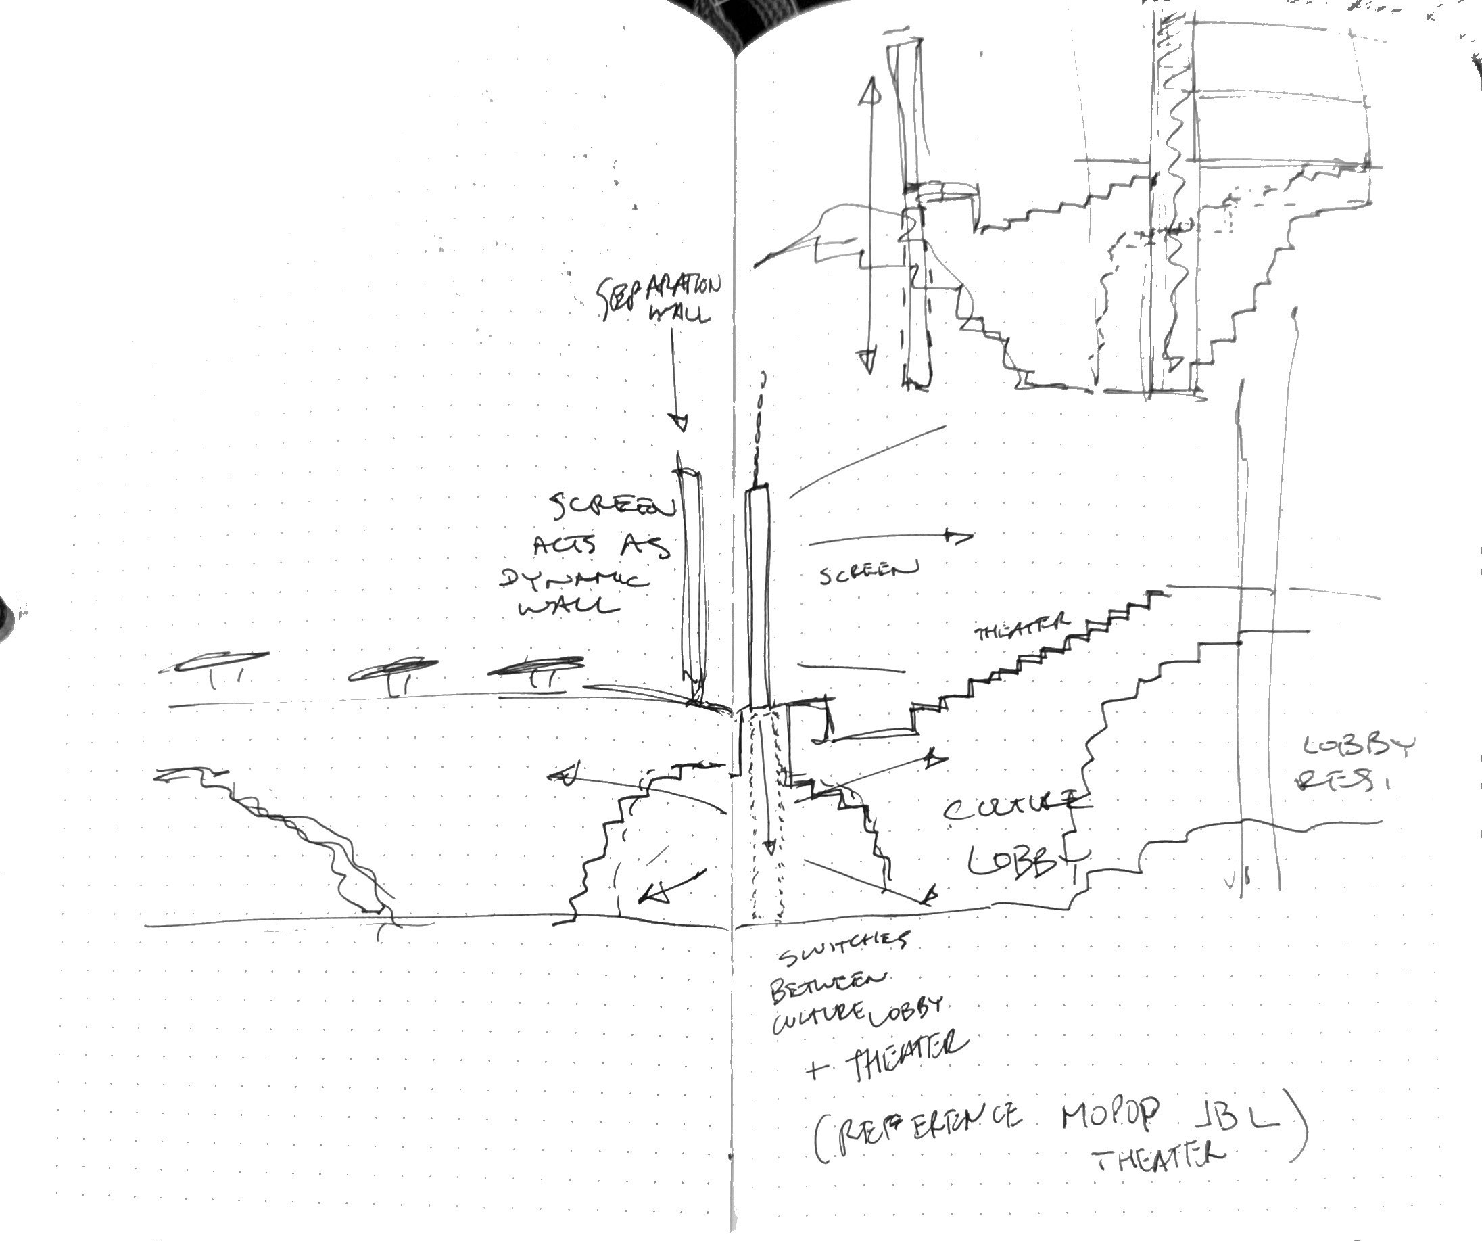 SEPARATION
WALL
SCREEN
ACTS AS
DYNAMIC
WALL
SCREEN
THEATER
CULTURE
LOBBY
LOBBY
RESI
SWITCHES
BETWEEN
CULTURE LOBBY
+ THEATER
(REFERENCE MOPOP JBL)
THEATER